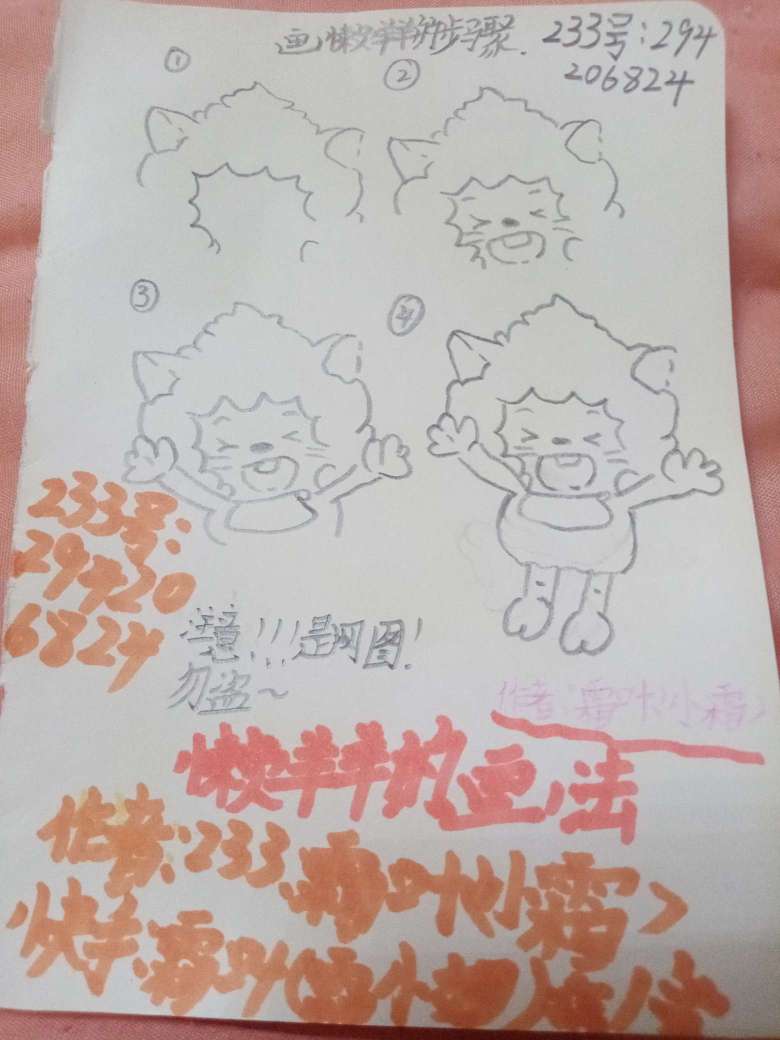 画懒羊羊的步骤. 233号:294
206824
①
②
③
④
233号:
29420
6824
注意!!!是网图!
勿盗~
作者:霜叶(小霜)
懒羊羊的画法
作者:233.霜叶(小霜)
快手:霜叶